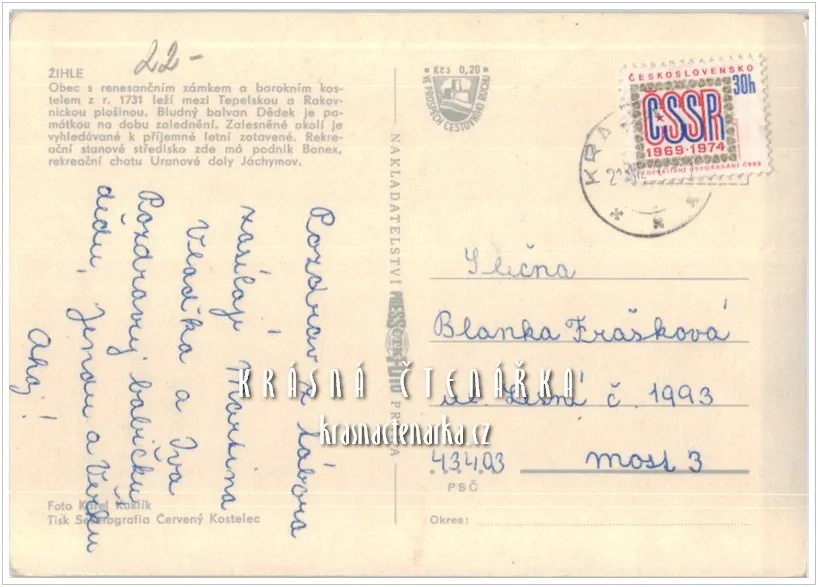 22-
ŽIHLE
Obec s renesančním zámkem a barokním kos-
telem z r. 1731 leží mezi Tepelskou a Rakov-
nickou plošinou. Bludný balvan Dědek je pa-
mátkou na dobu zalednění. Zalesněné okolí je
vyhledávané k příjemné letní zotavené. Rekre-
ační stanové středisko zde má podnik Bonex,
rekreační chatu Uranové doly Jáchymov.
Pozdrav z tábora
zasílají Martina
Vlaďka a Iva
Pozdravuj babičku
dědu, Jendu a Verču
Ahoj!
Foto Karel Kuklík
Tisk Severografia Červený Kostelec
NAKLADATELSTVÍ PRESSFOTO PRAHA
Kčs 0,20
VE PROSPĚCH CESTOVNÍHO RUCHU
ČESKOSLOVENSKO
30h
ČSSR
1969·1974
FEDERATIVNÍ USPOŘÁDÁNÍ ČSSR
Slečna
Blanka Frašková
ul. Lesní č. 1993
434 03 most 3
PSČ
Okres:
KRÁSNÁ ČTENÁŘKA
krasnactenarka.cz